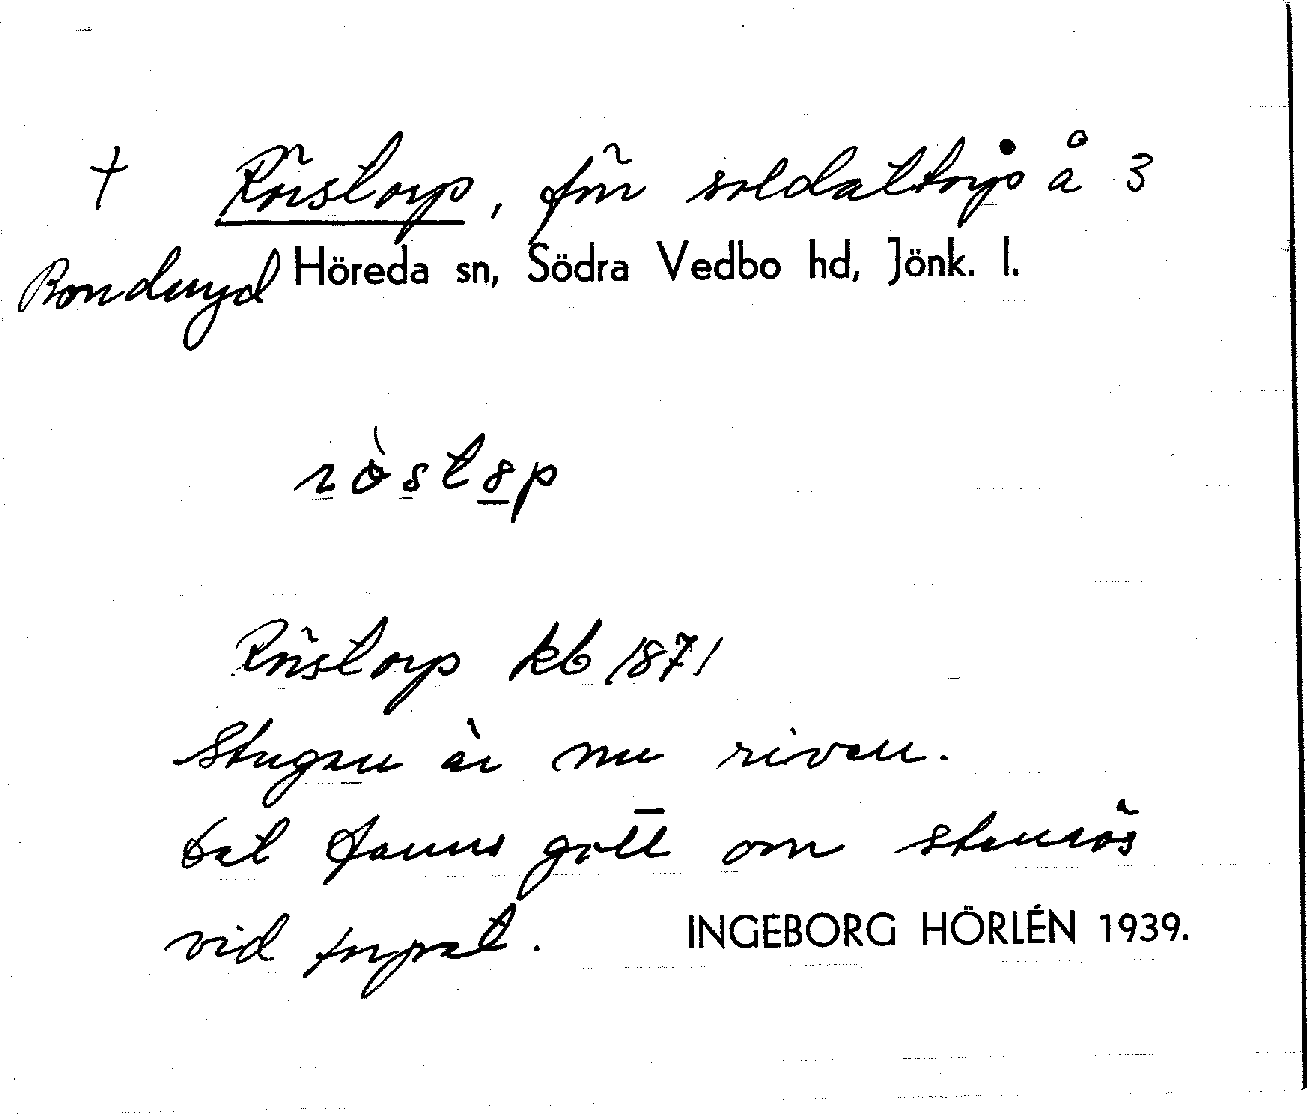 † Röstorp, för soldattorp å 3
Bonderyd Höreda sn, Södra Vedbo hd, Jönk. l.
ròstop
Röstorp kb 1871
Stugan är nu riven.
Det fanns gott om stenrös
vid torpet. INGEBORG HÖRLÉN 1939.